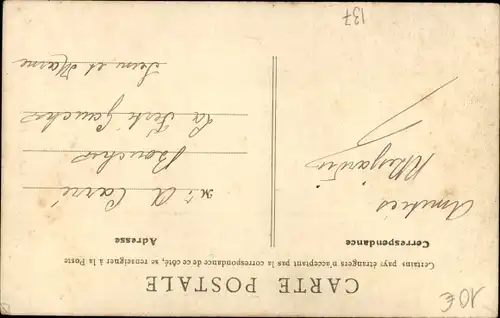 CARTE POSTALE
Certains pays étrangers n'acceptant pas la correspondance de ce côté, se renseigner à la Poste
Correspondance
Adresse
Amitiés
Mr A Carré
Boucher
La Ferté Gaucher
Seine et Marne
137
10€